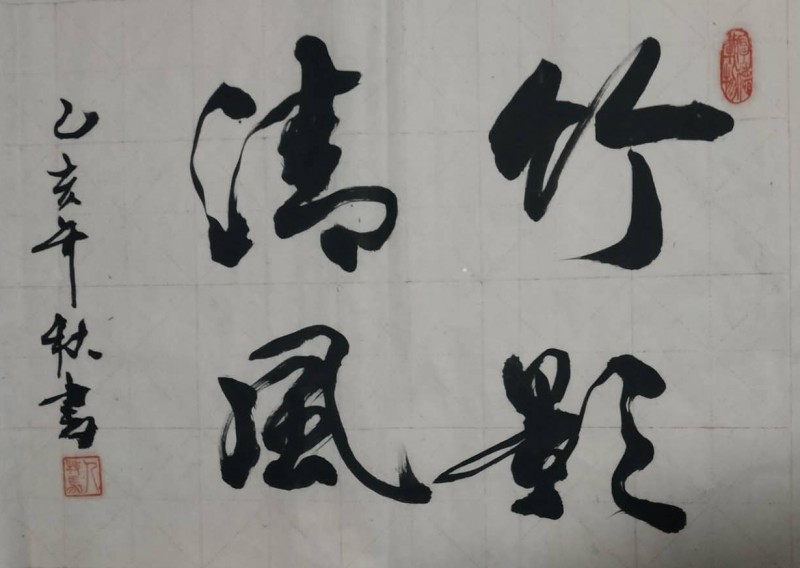 竹影
清風
乙亥年秋書